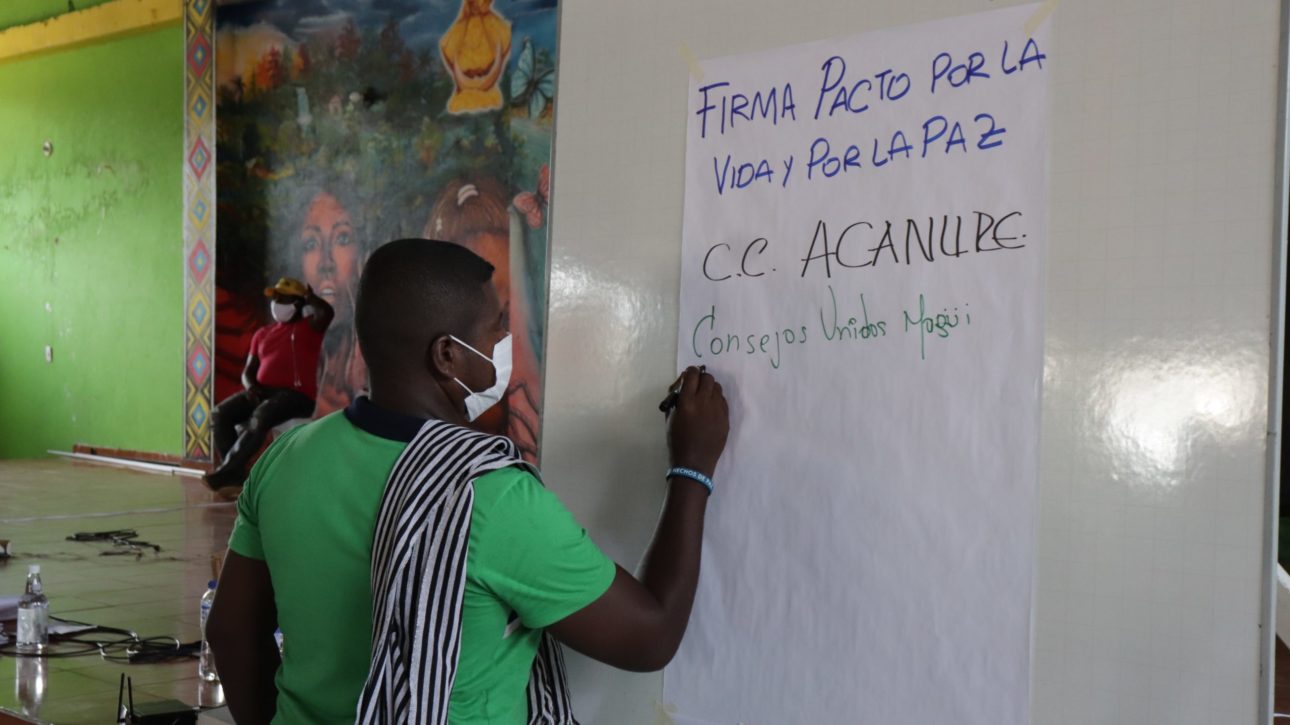 FIRMA PACTO POR LA
VIDA Y POR LA PAZ
C.C. ACANURE.
Consejos Unidos Magüi
HECHOS DE